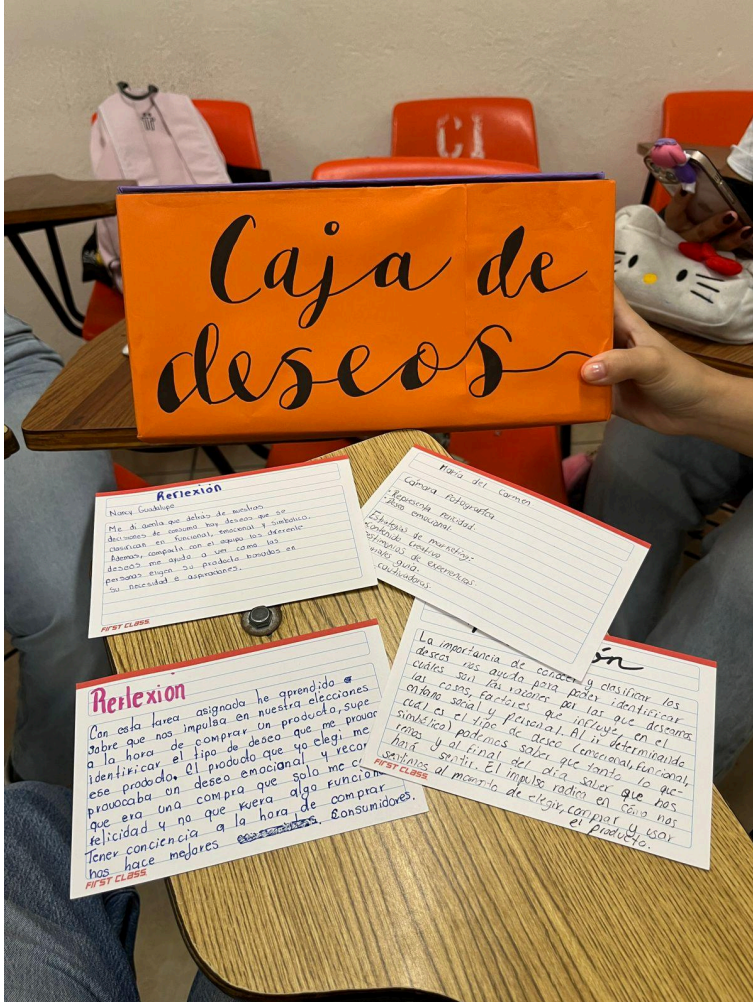 C1
Caja de
deseos
Reflexión
Nancy Guadalupe
Me di cuenta que detras de nuestras
decisiones de consumo hay deseos que se
clasifican en funcional, emocional y simbolico.
Ademas, compartir con el equipo los diferente
deseos me ayudo a ver como las
personas eligen su producto basados en
su necesidad e aspiraciones.
FIRST CLASS
María del Carmen
Cámara Fotografica
Representa felicidad.
Deseo emocional.
Estrategias de marketing:
contenido creativo
testimonios de experiencias
guía.
cautivadoras.
Reflexion
Con esta tarea asignada he aprendido
sobre que nos impulsa en nuestra elecciones
a la hora de comprar un producto, supe
identificar el tipo de deseo que me provo
ese producto. El producto que yo elegi me
provocaba un deseo emocional y recor
que era una compra que solo me
felicidad y no que fuera algo funcion
Tener conciencia a la hora de comprar
nos hace mejores consumidores.
FIRST CLASS
ón
La importancia de conocer y clasificar los
deseos nos ayuda para poder identificar
cuáles son las razones por las que deseamos
las cosas, factores que influyen en el
entorno social y personal. Al ir determinando
cuál es el tipo de deseo (emocional, funcional,
simbólico) podemos saber que tanto lo que-
remos y al final del día saber que nos
hará sentir. El impulso radica en cómo nos
sentimos al momento de elegir, comprar y usar
el producto.
FIRST CLASS